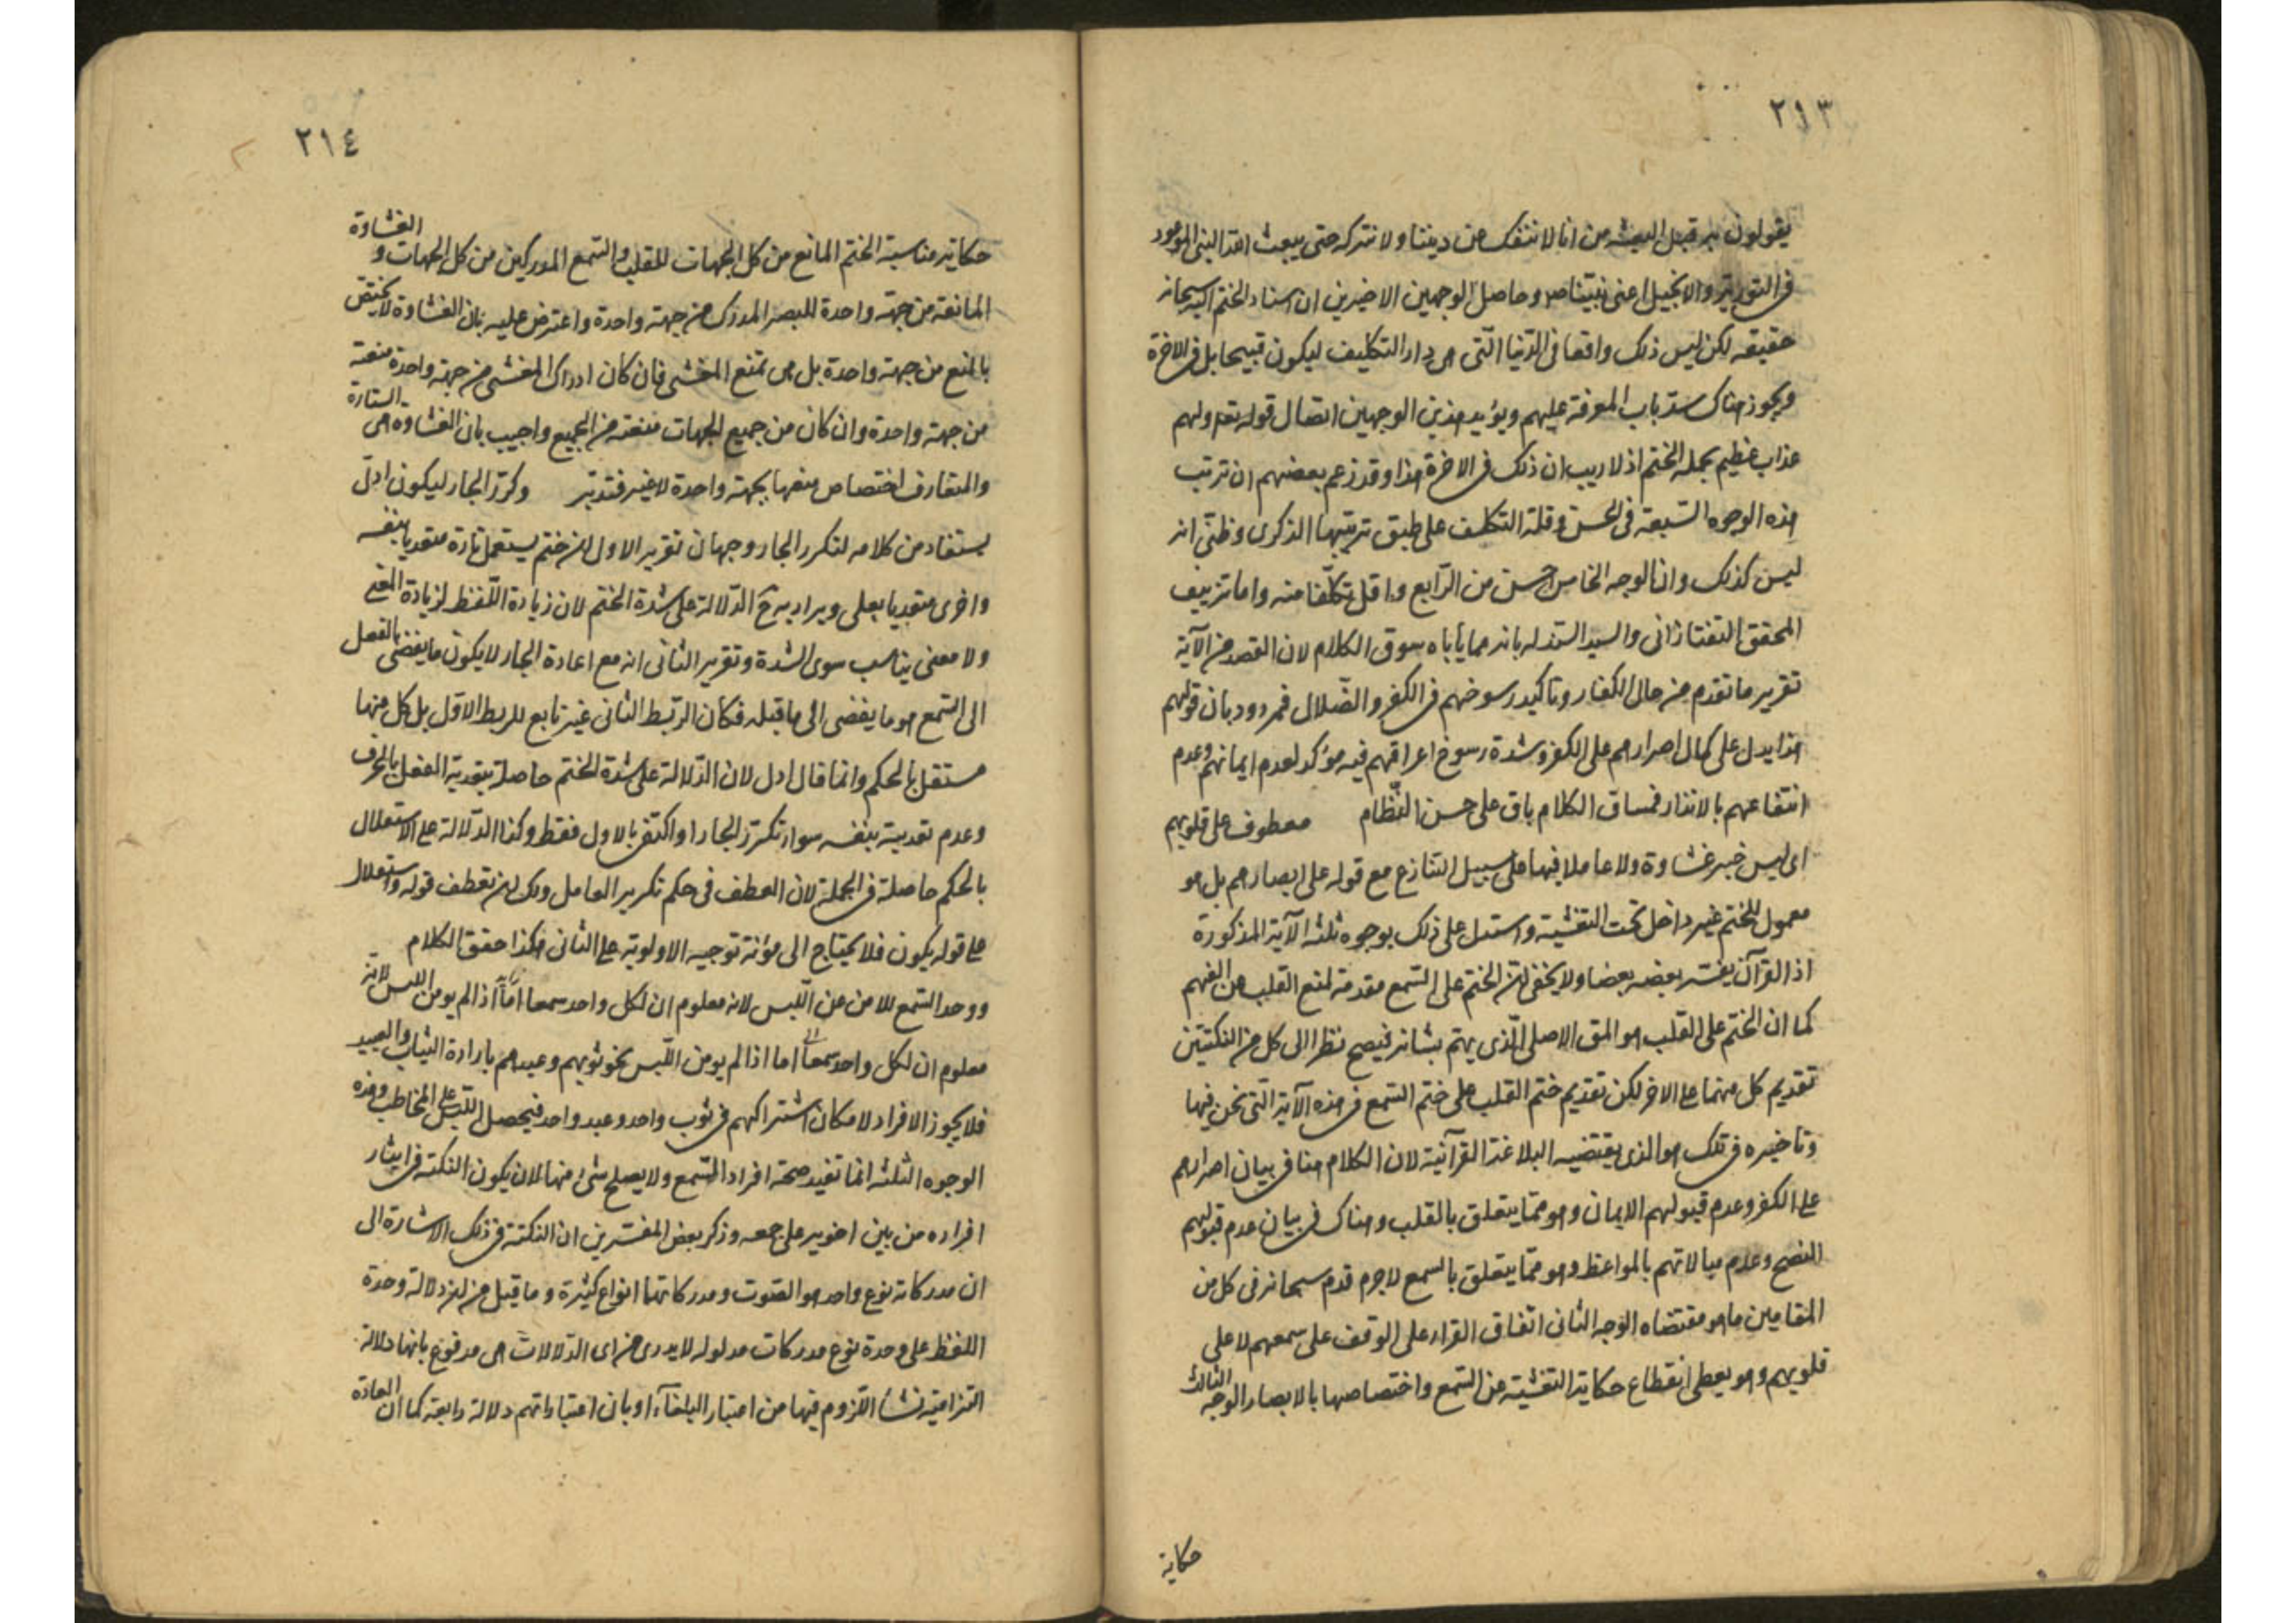 ٢١٣
يقولون به قبل البعثة من انا لا ننفك عن ديننا ولا نتركه حتى يبعث الله النبى الموعود
فى التورية والانجيل اعنى نبيناص وحاصل الوجهين الاخيرين ان اسناد الختم اليه سبحانه
حقيقه لكن ليس ذلك واقعا فى الدنيا التى هى دار التكليف ليكون قبيحا بل فى الاخرة
ويجوز هناك سد باب المعرفة عليهم ويؤيد هذين الوجهين اتصال قوله تعه ولهم
عذاب عظيم بجملة الختم اذ لا ريب ان ذلك فى الاخرة هذا وقد زعم بعضهم ان ترتب
هذه الوجوه السبعة فى الحسن وقلة التكلف على طبق ترتيبها الذكرى وظنى انه
ليس كذلك وان الوجه الخامس احسن من الرابع واقل تكلفا منه واما تزييف
المحقق التفتازانى والسيد السند له بانه مما يأباه سوق الكلام لان القصد من الآية
تقرير ما تقدم من حال الكفار وتاكيد رسوخهم فى الكفر والضلال فمردود بان قولهم
هذا يدل على كمال اصرارهم على الكفر وشدة رسوخ اعراقهم فيه مؤكد لعدم ايمانهم وعدم
انتفاعهم بالانذار فمساق الكلام باق على حسن النظام معطوف على قلوبهم
اى ليس خبر غشاوة ولا عاملا فيها على سبيل التنازع مع قوله على ابصارهم بل هو
معمول للختم غير داخل تحت التغشية واستدل على ذلك بوجوه ثلثه الآية المذكورة
اذ القرآن يفسر بعضه بعضا ولا يخفى ان الختم على السمع مقدمة لمنع القلب من الفهم
كما ان الختم على القلب هو المق الاصلى الذى يهتم بشانه فيصح نظرا الى كل من النكتتين
تقديم كل منهما على الاخر لكن تقديم ختم القلب على ختم السمع فى هذه الآية التى نحن فيها
وتاخيره فى تلك هو الذى يقتضيه البلاغة القرآنية لان الكلام هنا فى بيان اصرارهم
على الكفر وعدم قبولهم الايمان وهو مما يتعلق بالقلب وهناك فى بيان عدم قبولهم
النصح وعدم مبالاتهم بالمواعظ وهو مما يتعلق بالسمع لا جرم قدم سبحانه فى كل من
المقامين ما هو مقتضاه الوجه الثانى اتفاق القراء على الوقف على سمعهم لا على
قلوبهم وهو يعطى انقطاع حكاية التغشية عن السمع واختصاصها بالابصار الوجه الثالث
حكاية
٢١٤
حكاية مناسبة الختم المانع من كل الجهات للقلب والسمع المدركين من كل الجهات و الغشاوة
المانعة من جهة واحدة للبصر المدرك من جهة واحدة واعترض عليه بان الغشاوة لا يختص
بالمنع من جهة واحدة بل هى تمنع المغشى فان كان ادراك المغشى من جهة واحدة منعته
من جهة واحدة وان كان من جميع الجهات منعته من الجميع واجيب بان الغشاوة هى الستارة
والمتعارف اختصاص منعها بجهة واحدة لا غير فتدبر وكرر الجار ليكون ادل
يستفاد من كلامه لتكرر الجار وجهان تقرير الاول ان ختم يستعمل تارة متعديا بنفسه
واخرى متعديا بعلى ويراد به ح الدلالة على شدة الختم لان زيادة اللفظ لزيادة المعنى
ولا معنى يناسب سوى الشدة وتقرير الثانى انه مع اعادة الجار لا يكون ما يفضى بالفعل
الى السمع هو ما يفضى الى ما قبله فكان الربط الثانى غير تابع للربط الاول بل كل منهما
مستقل بالحكم وانما قال ادل لان الدلالة على شدة الختم حاصلة بتعدية الفعل بالحرف
وعدم تعديته بنفسه سواء تكرر الجار او اكتفى بالاول فقط وكذا الدلالة على الاستقلال
بالحكم حاصلة فى الجملة لان العطف فى حكم تكرير العامل ولك ان تعطف قوله واستقلال
على قوله يكون فلا يحتاج الى مؤنة توجيه الاولوية على الثانى هكذا حقق الكلام
ووحد السمع للامن عن اللبس لانه معلوم ان لكل واحد سمعا اما اذا لم يومن اللبس لانه
معلوم ان لكل واحد سمعا اما اذا لم يومن اللبس نحو ثوبهم وعبدهم بارادة الثياب والعبيد
فلا يجوز الافراد لامكان اشتراكهم فى ثوب واحد وعبد واحد فيحصل اللبس على المخاطب وهذه
الوجوه الثلثه انما تفيد صحة افراد السمع ولا يصلح شئ منها لان يكون النكته فى ايثار
افراده من بين اخويه على جمعه وذكر بعض المفسرين ان النكتة فى ذلك الاشارة الى
ان مدركاته نوع واحد هو الصوت ومدركاتهما انواع كثيرة وما قيل من ان دلالة وحدة
اللفظ على وحدة نوع مدركات مدلوله لا يدرى من اى الدلالات هى مدفوع بانها دلالة
التزامية نشأ اللزوم فيها من اعتبار البلغاء او بان اعتباراتهم دلالة رابعة كما ان العادة